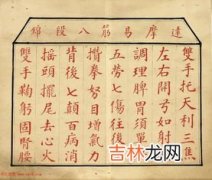 達摩易筋八段綿
雙手托天利三焦
左右開弓如射
調理脾胃須單
五勞七傷往後
攢拳努目增氣力
背後七顛百病消
搖頭擺尾去心火
雙手鞠躬固腎腰